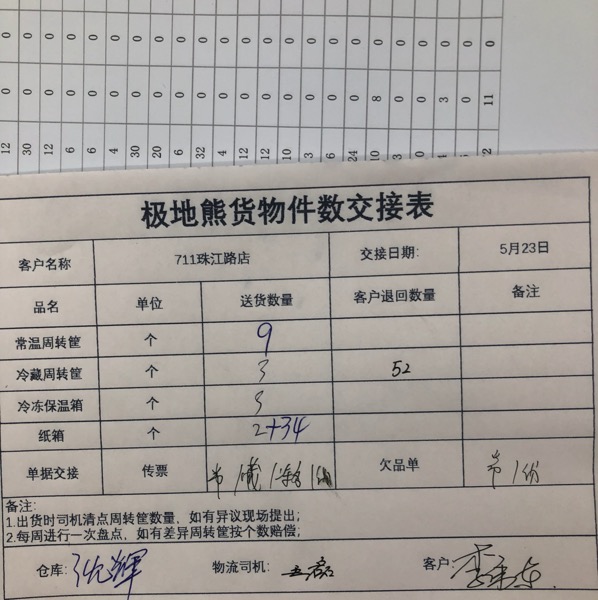 0 0 0 0 0 0 0 0 0 0 0 0 0 0 0 0 0 0 0 0 0 0 0
0 0 0 0 0 0 0 0 0 0 0 0 0 0 0 0 0 8 0 0 3 0 11
12 30 12 6 6 4 30 20 6 32 4 12 12 10 3 6 24 10 3
极地熊货物件数交接表
客户名称 711珠江路店 交接日期: 5月23日
品名 单位 送货数量 客户退回数量 备注
常温周转筐 个 9
冷藏周转筐 个 3 52
冷冻保温箱 个 3
纸箱 个 2+34
单据交接 传票 欠品单
备注:
1.出货时司机清点周转筐数量，如有异议现场提出;
2.每周进行一次盘点，如有差异周转筐按个数赔偿;
仓库: 沈辉 物流司机: 客户: